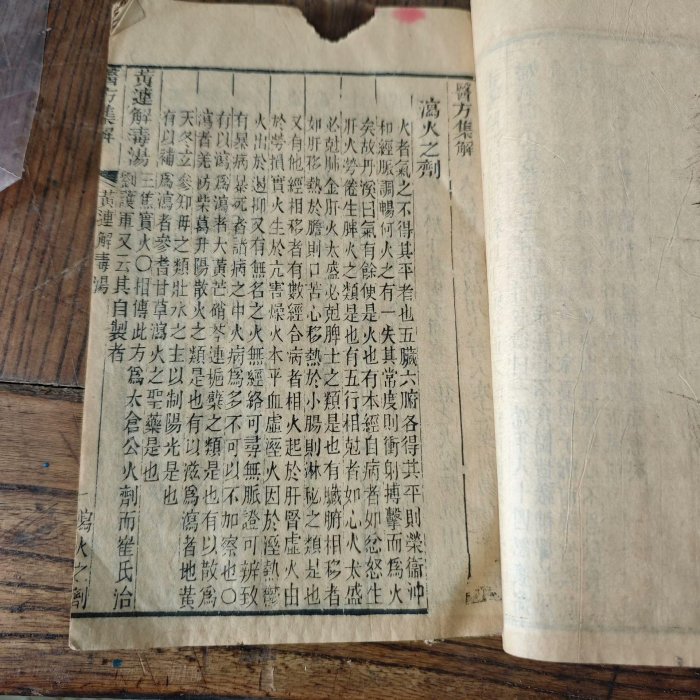 醫方集解
瀉火之劑
火者氣之不得其平者也五臟六腑各得其平則榮衞冲
和經脈調暢何火之有一失其常度則衝射搏擊而爲火
矣故丹溪曰氣有餘便是火也有本經自病者如忿怒生
肝火勞倦生脾火之類是也有五行相尅者如心火太盛
必尅肺金肝火太盛必尅脾土之類是也有臟腑相移者
如肝移熱於膽則口苦心移熱於小腸則淋秘之類是也
又有他經相移者有數經合病者相火起於肝腎虛火由
於勞損實火生於亢害燥火本乎血虛溼火因於溼熱鬱
火出於遏抑又有無名之火無經絡可尋無脈證可辨致
有暴病暴死者諸病之中火病爲多不可以不加察也〇
有以瀉爲瀉者大黃芒硝芩連梔蘗之類是也有以散爲
瀉者羌防柴葛升陽散火之類是也有以滋爲瀉者地黃
天冬玄參知毋之類壯水之主以制陽光是也
有以補爲瀉者參耆甘草瀉火之聖藥是也
黃連解毒湯
三焦實火〇相傳此方爲太倉公火劑而崔氏治
劉護軍又云其自製者
醫方集解
黃連解毒湯
一
瀉火之劑